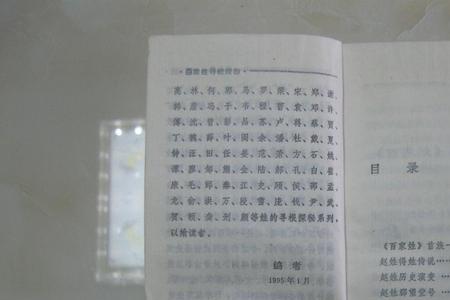 高、林、何、郭、马、罗、梁、宋、郑、谢、
韩、唐、冯、于、韦、程、曹、袁、邓、许、
傅、沈、曾、彭、吕、苏、卢、蒋、蔡、贾、
丁、魏、薛、叶、阎、余、潘、杜、戴、夏、
钟、汪、田、任、姜、范、方、石、姚、
谭、廖、邹、熊、金、陆、郝、孔、白、崔、
康、毛、邱、秦、江、史、顾、侯、邵、孟、
龙、万、段、雷、钱、尹、武、
贺、赖、龚、等姓的寻根探秘系列，
以飨读者。
编 者
1995年1月
目 录
《百家姓》首族
赵姓得姓传说
赵姓历史演变
赵姓郡望堂号